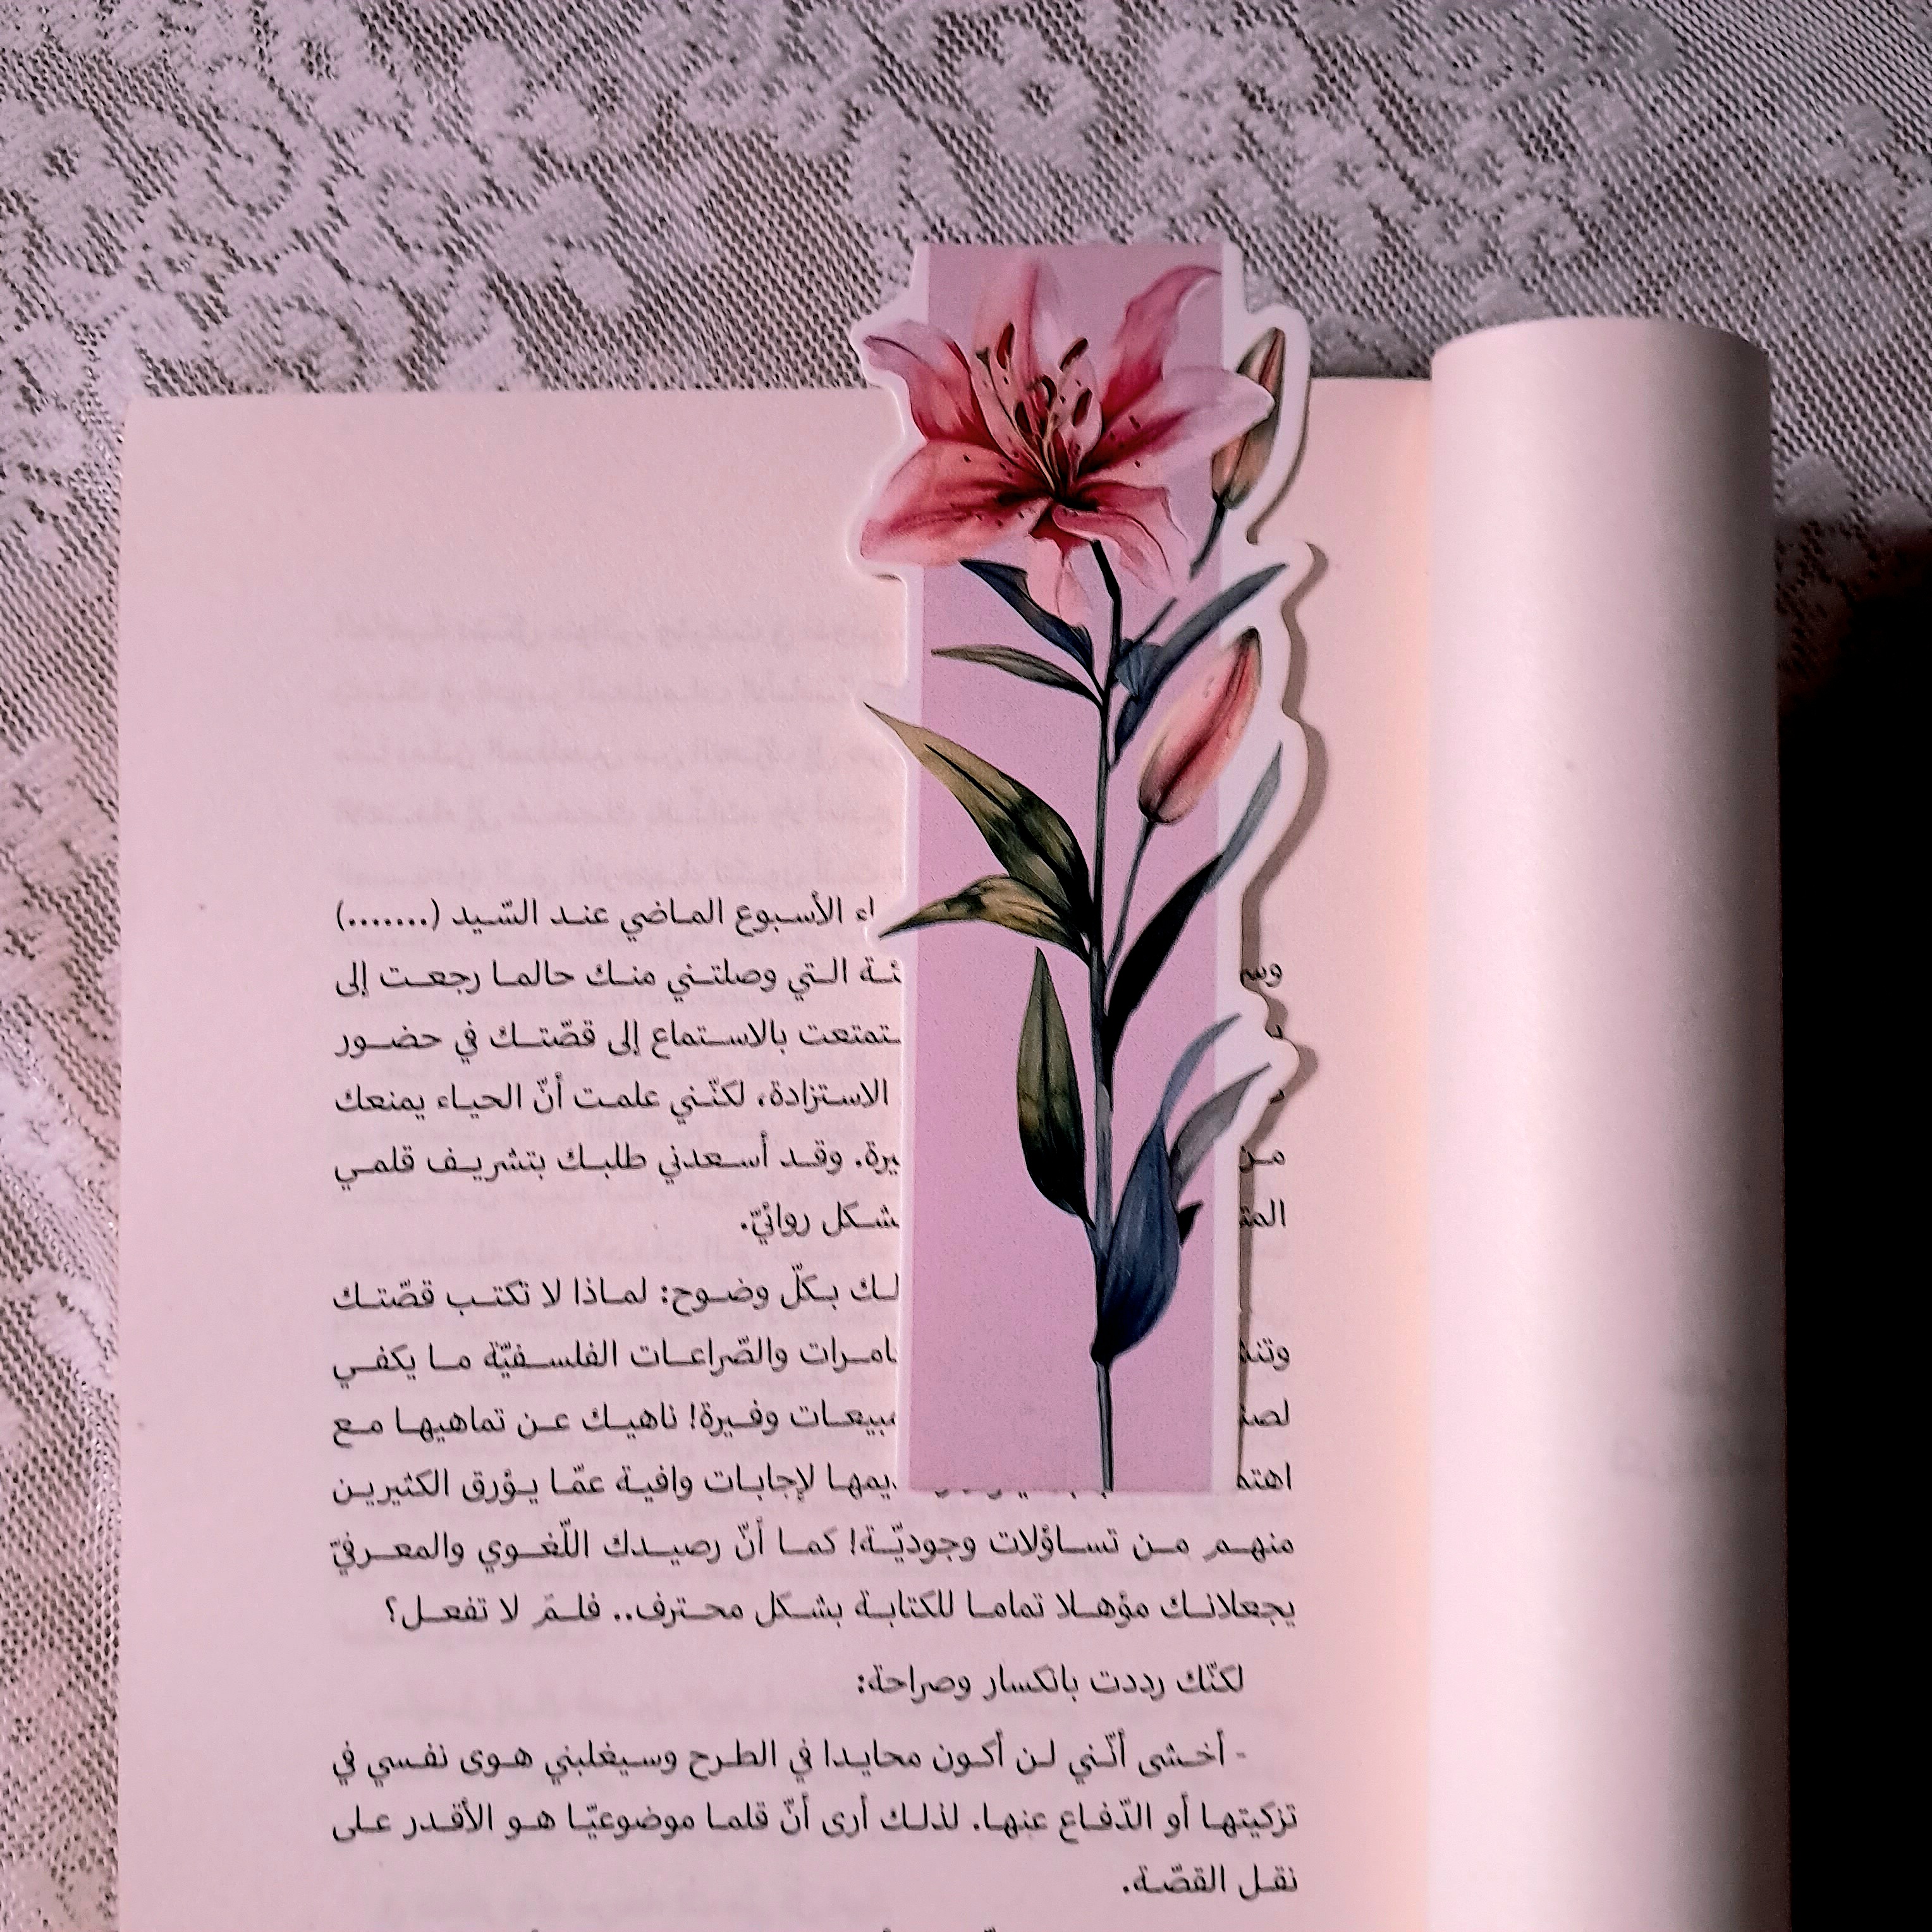 الأسبوع الماضي عند السّيد (.......)
التي وصلتني منك حالما رجعت إلى
بالاستماع إلى قصّتك في حضور
الاستزادة، لكنّني علمت أنّ الحياء يمنعك
من وقد أسعدني طلبك بتشريف قلمي
روائيّ.
بكلّ وضوح: لماذا لا تكتب قصّتك
والصّراعات الفلسفيّة ما يكفي
وفيرة! ناهيك عن تماهيها مع
لإجابات وافية عمّا يؤرق الكثيرين
منهم من تساؤلات وجوديّة! كما أنّ رصيدك اللّغوي والمعرفيّ
يجعلانك مؤهلا تماما للكتابة بشكل محترف.. فلمَ لا تفعل؟
لكنّك رددت بانكسار وصراحة:
- أخشى أنّني لن أكون محايدا في الطرح وسيغلبني هوى نفسي في
تزكيتها أو الدّفاع عنها. لذلك أرى أنّ قلما موضوعيّا هو الأقدر على
نقل القصّة.